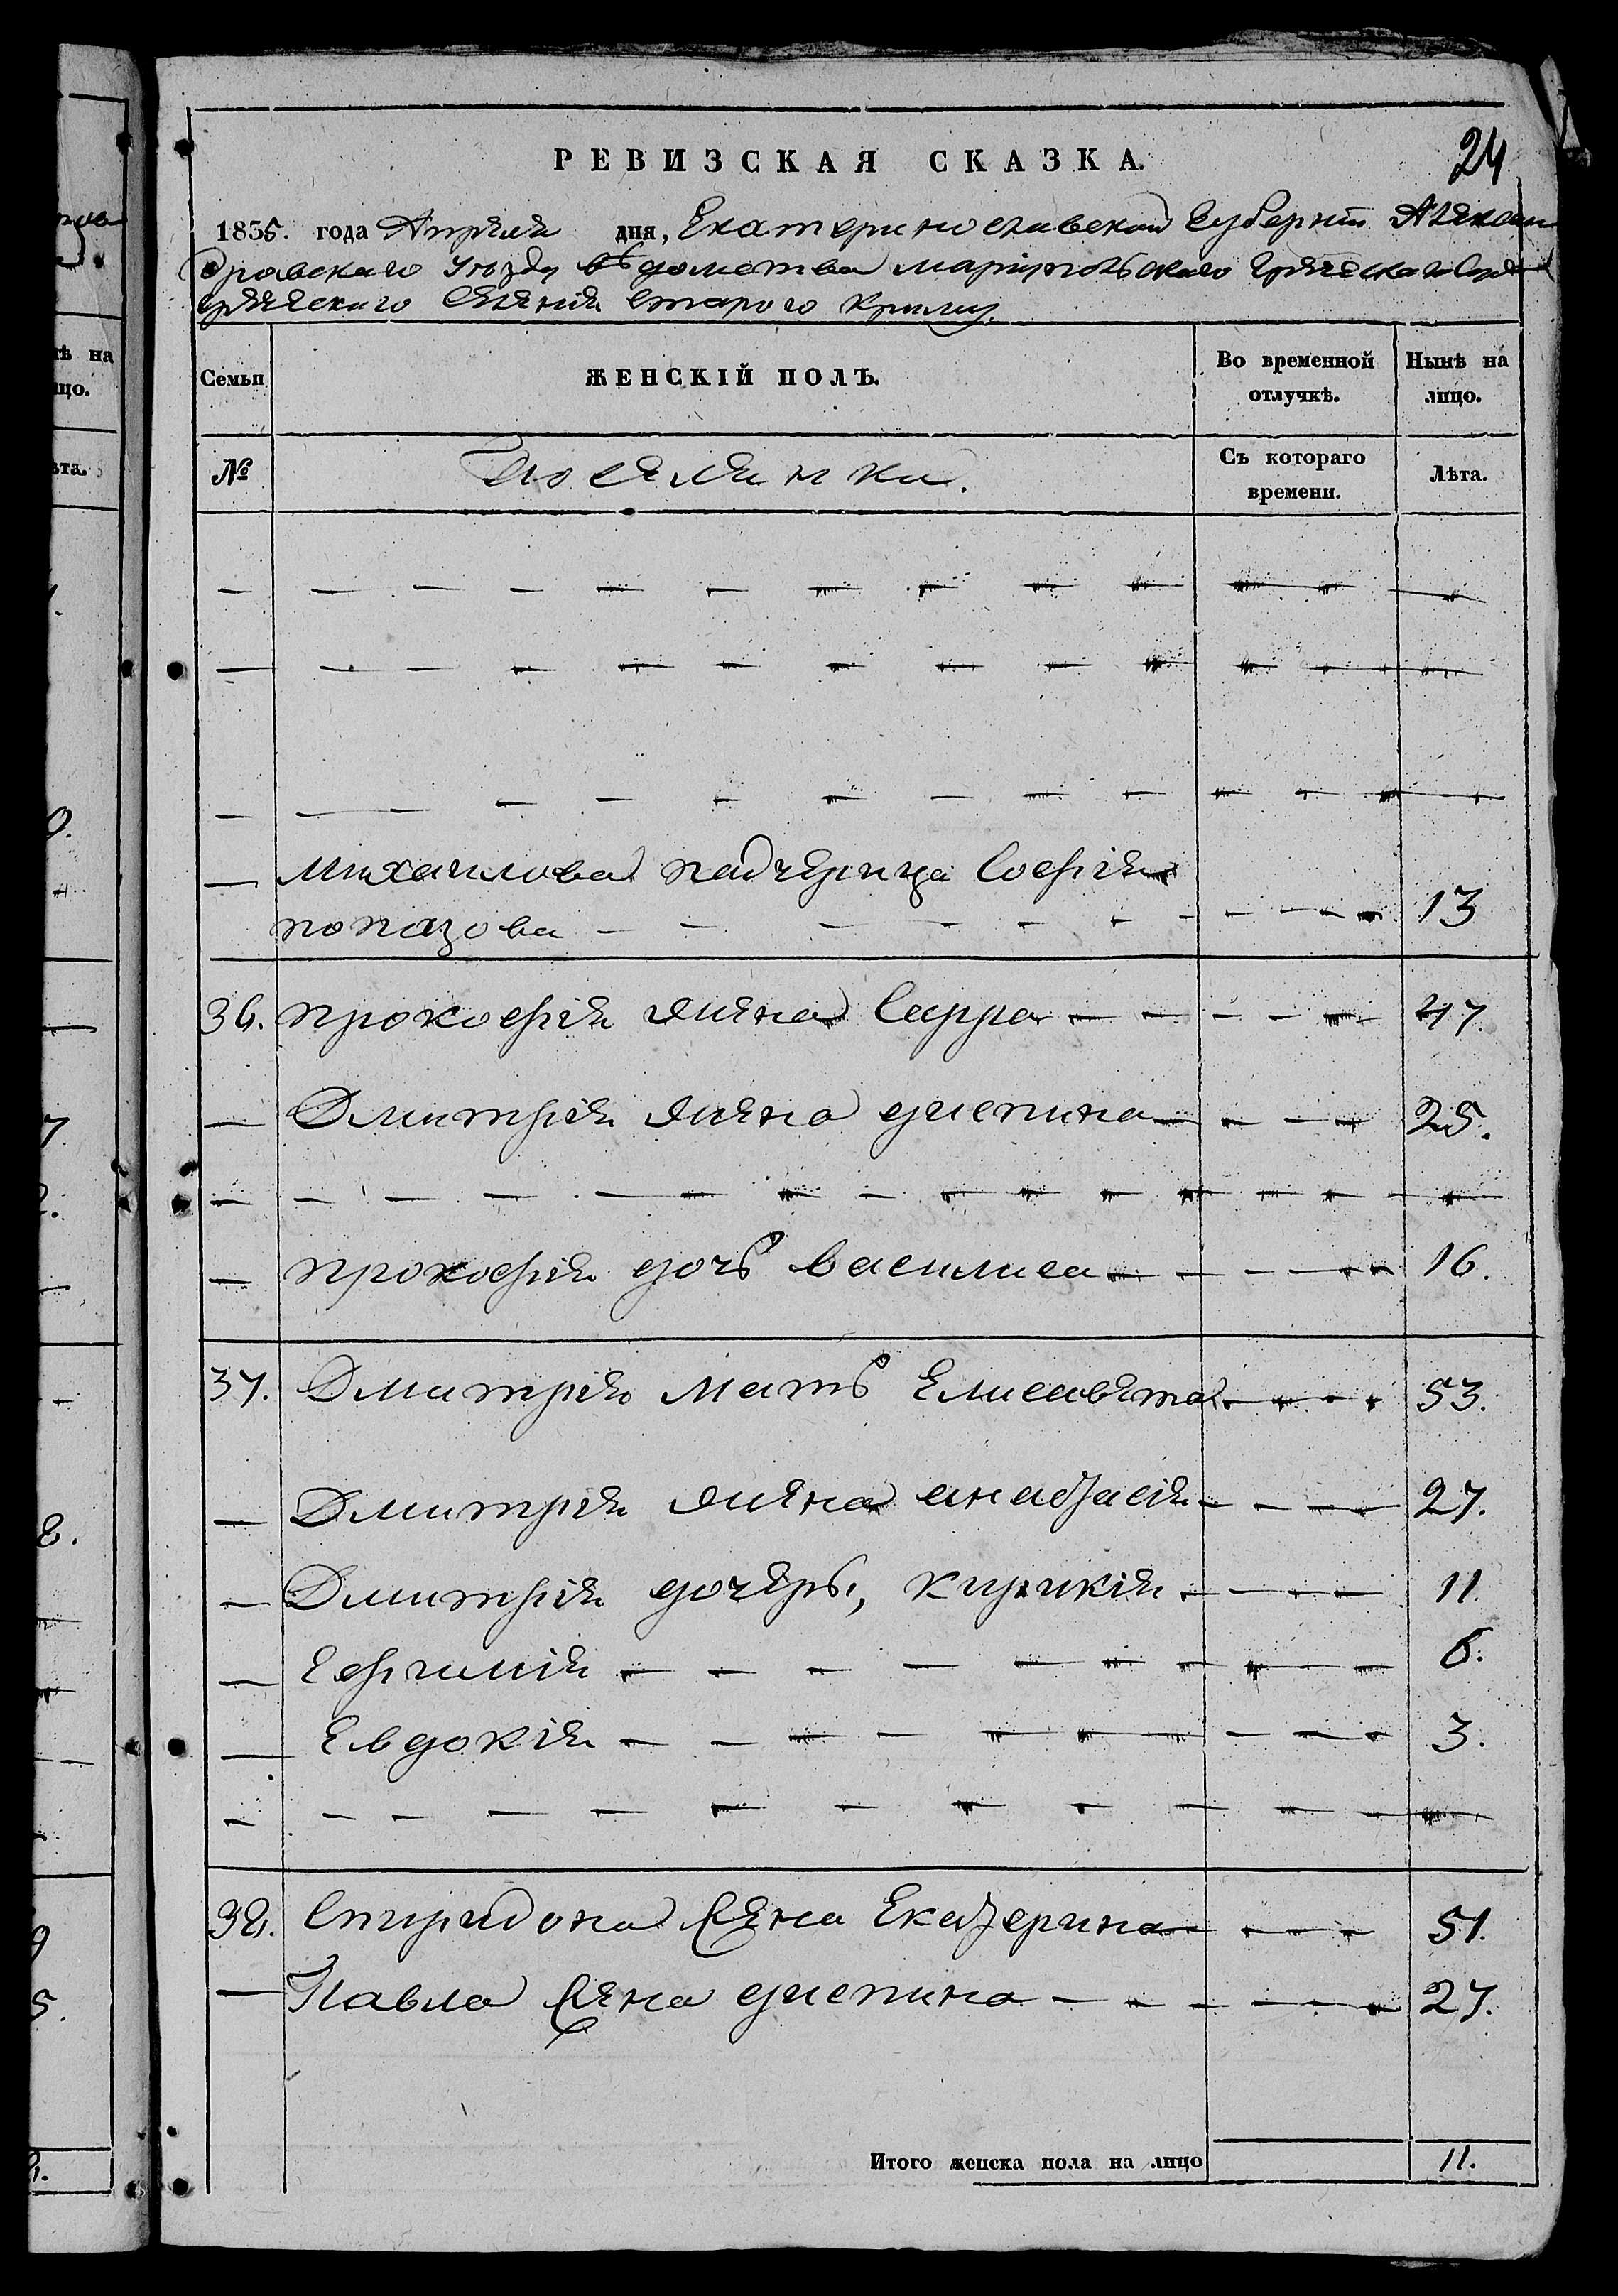 24
РЕВИЗСКАЯ СКАЗКА.
1835. года Апреля дня, Екатеринославской Губерніи Алексан
дровскаго уѣзда вѣдомства маріупольскаго греческаго Суда
греческаго Селенія Старого Крыму.
Семьи ЖЕНСКІЙ ПОЛЪ. Во временной отлучкѣ. Нынѣ на лицо.
№ Поселянки. Съ котораго времени. Лѣта.
— — — —
— — — —
— — — —
— Михаилова падчерица Софія
попазова — — 13
36. прокофія жена Сарра — — 47
— Дмитрія жена деспина — — 25.
— — — —
— прокофія дочь василиса — — 16.
37. Дмитрія мать Елисавета — 53.
— Дмитрія жена анастасія — — 27.
— Дмитрія дочери, кирикія — — 11.
— Ефимія — — 6.
— Евдокія — — 3.
— — — —
38. Спиридона жена Екатерина — 51.
— Павла жена деспина — — 27.
Итого женска пола на лицо 11.